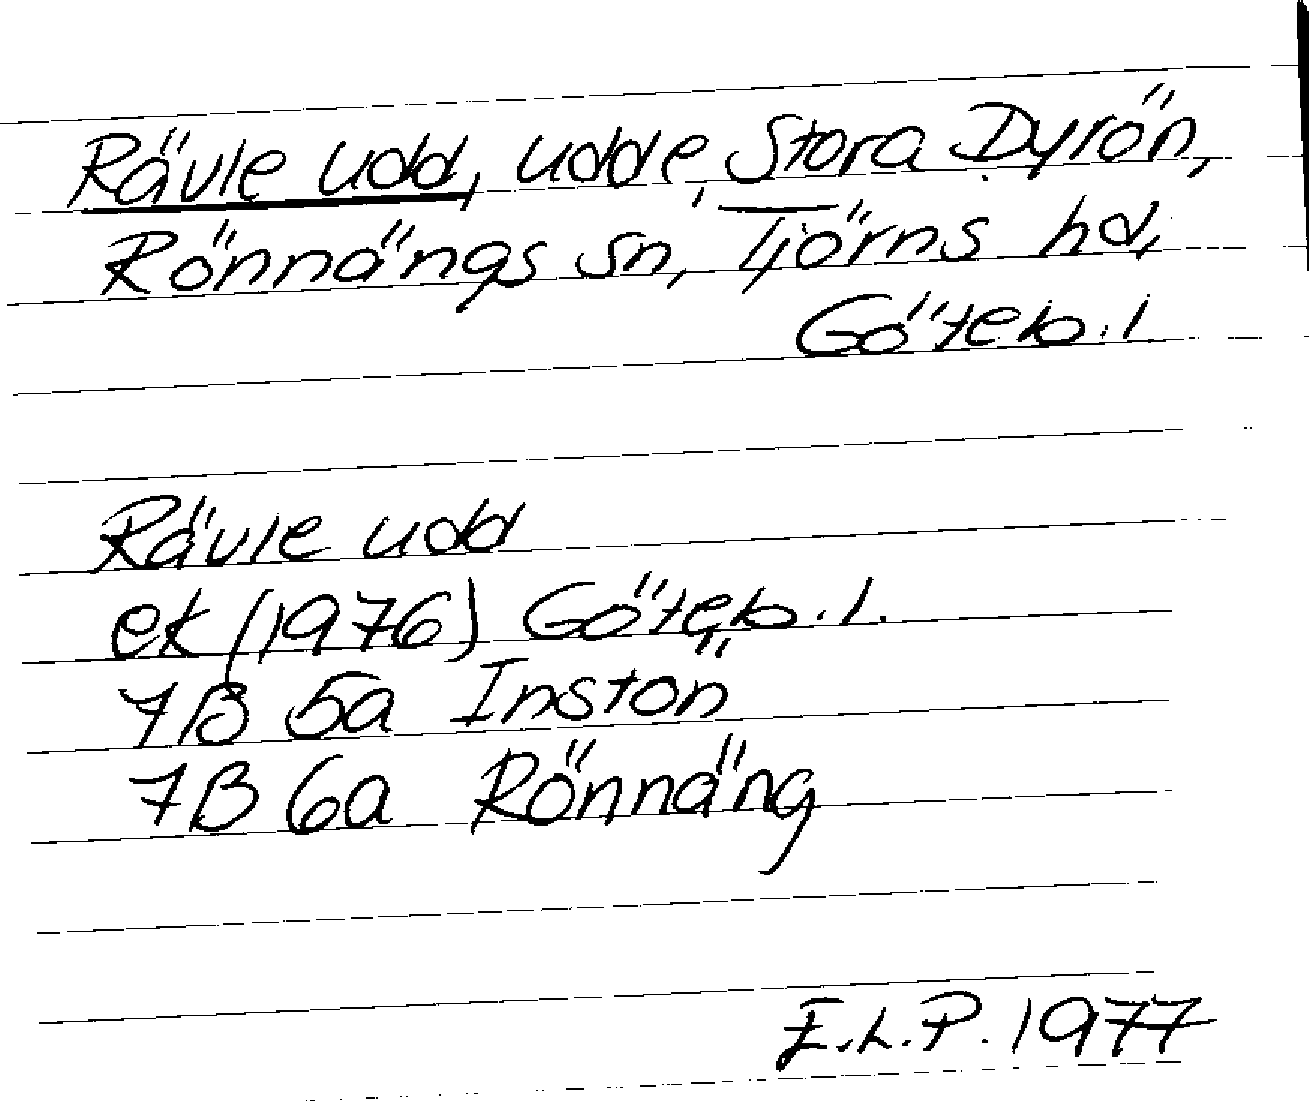 Rävle udd, udde, Stora Dyrön,
Rönnängs sn, Tjörns hd,
Göteb. l
Rävle udd
ek (1976) Göteb. l.
7B 5a Instön
7B 6a Rönnäng
E.L.P. 1977